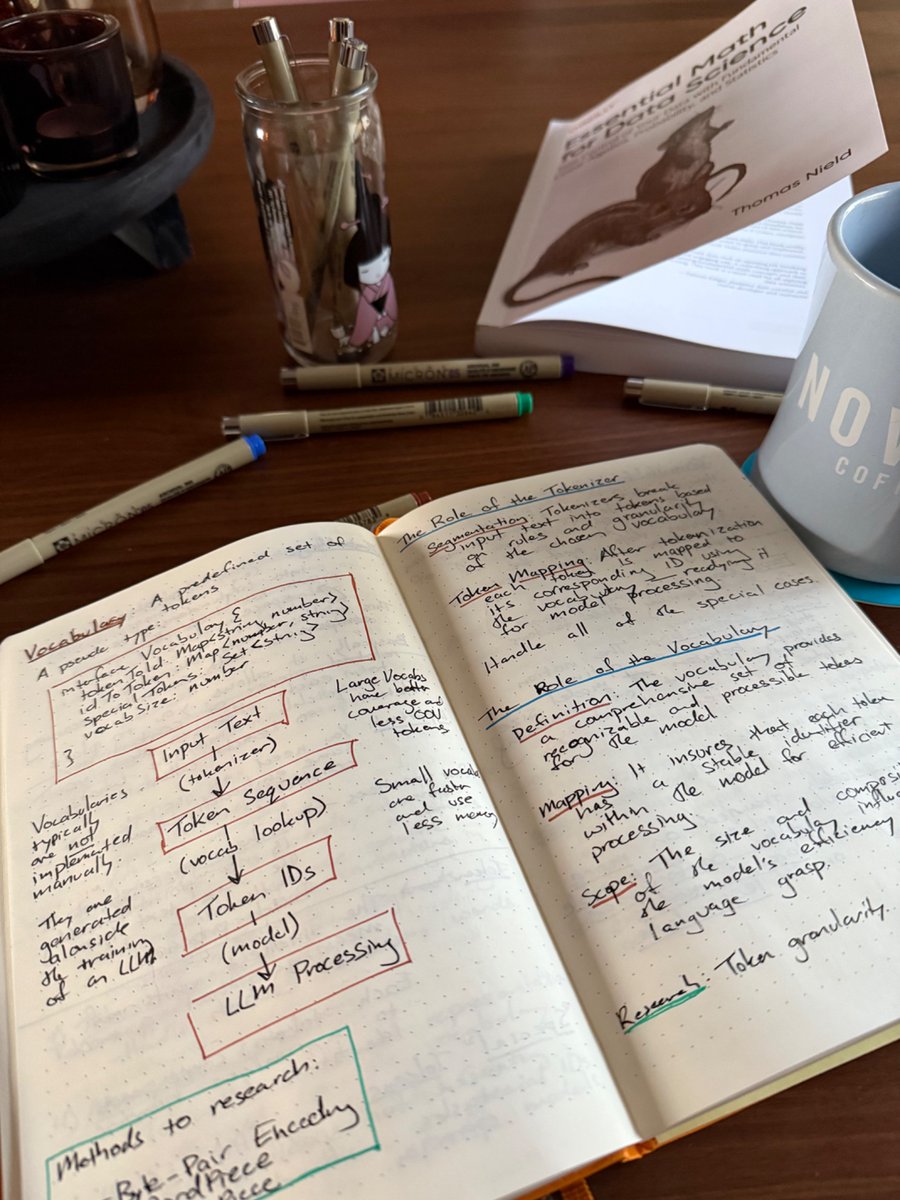 Essential Math
for Data Science
Thomas Nield
MICRON
NOV
COF
Vocabulary: A predefined set of
tokens
A pseudo type:
interface Vocabulary {
tokenToId: Map<string, number>
idToToken: Map<number, string>
specialTokens: Set<string>
vocabSize: number
}
Input Text
(tokenizer)
Token Sequence
(vocab lookup)
Token IDs
(model)
LLM Processing
Large Vocabs
have better
coverage and
less OOV
tokens
Small vocabs
are faster
and use
less memory
Vocabularies
typically
are not
implemented
manually.
They are
generated
alongside
the training
of an LLM
Methods to research:
- Byte-Pair Encoding
The Role of the Tokenizer
Segmentation: Tokenizers break
input text into tokens based
on rules and granularity
of the chosen vocabulary
Token Mapping: After tokenization
each token is mapped to
its corresponding ID using
the vocabulary, readying it
for model processing.
Handle all of the special cases.
The Role of the Vocabulary
Definition: The vocabulary provides
a comprehensive set of
recognizable and processible tokens
for the model
Mapping: It insures that each token
has a stable identifier
within the model for efficient
processing.
Scope: The size and composi
of the vocabulary influe
the model's efficiency
language grasp.
Research: Token granularity.